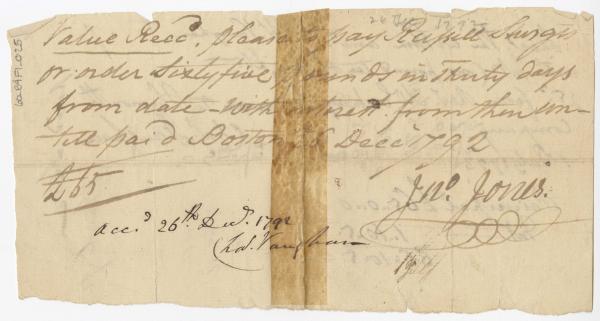 Value Recd. please to pay Russell Sturgis
or order Sixty five pounds in Thirty days
from date - With interest from then un-
till paid Boston 26 Decr 1792
£65
Jno. Jones.
Acc.d 26th Decr. 1792
Chas. Vaughan